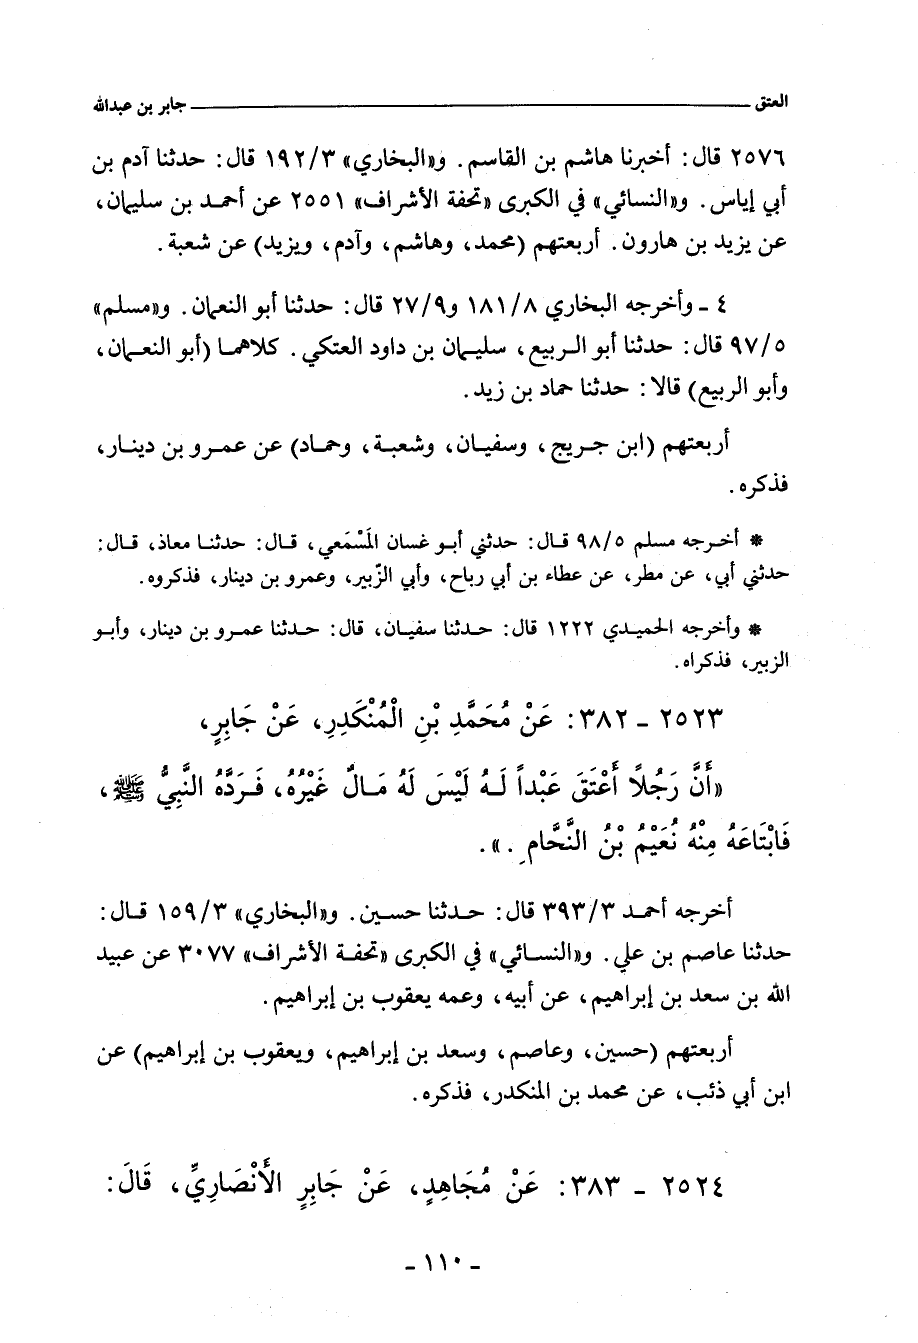 العتق ـــــــ جابر بن عبدالله
٢٥٧٦ قال: أخبرنا هاشم بن القاسم. و«البخاري» ١٩٢/٣ قال: حدثنا آدم بن
أبي إياس. و«النسائي» في الكبرى «تحفة الأشراف» ٢٥٥١ عن أحمد بن سليمان،
عن يزيد بن هارون. أربعتهم (محمد، وهاشم، وآدم، ويزيد) عن شعبة.
٤ - وأخرجه البخاري ١٨١/٨ و٢٧/٩ قال: حدثنا أبو النعمان. و«مسلم»
٩٧/٥ قال: حدثنا أبو الربيع، سليمان بن داود العتكي. كلاهما (أبو النعمان،
وأبو الربيع) قالا: حدثنا حماد بن زيد.
أربعتهم (ابن جريج، وسفيان، وشعبة، وحماد) عن عمرو بن دينار،
فذكره.
* أخرجه مسلم ٩٨/٥ قال: حدثني أبو غسان المَسْمَعي، قال: حدثنا معاذ، قال:
حدثني أبي، عن مطر، عن عطاء بن أبي رباح، وأبي الزّبير، وعمرو بن دينار، فذكروه.
* وأخرجه الحميدي ١٢٢٢ قال: حدثنا سفيان، قال: حدثنا عمرو بن دينار، وأبو
الزبير، فذكراه.
٢٥٢٣ - ٣٨٢: عَنْ مُحَمَّدِ بْنِ الْمُنْكَدِرِ، عَنْ جَابِرٍ،
«أَنَّ رَجُلاً أَعْتَقَ عَبْداً لَهُ لَيْسَ لَهُ مَالٌ غَيْرُهُ، فَرَدَّهُ النَّبِيُّ ﷺ،
فَابْتَاعَهُ مِنْهُ نُعَيْمُ بْنُ النَّحَّامِ.».
أخرجه أحمد ٣٩٣/٣ قال: حدثنا حسين. و«البخاري» ١٥٩/٣ قال:
حدثنا عاصم بن علي. و«النسائي» في الكبرى «تحفة الأشراف» ٣٠٧٧ عن عبيد
الله بن سعد بن إبراهيم، عن أبيه، وعمه يعقوب بن إبراهيم.
أربعتهم (حسين، وعاصم، وسعد بن إبراهيم، ويعقوب بن إبراهيم) عن
ابن أبي ذئب، عن محمد بن المنكدر، فذكره.
٢٥٢٤ - ٣٨٣: عَنْ مُجَاهِدٍ، عَنْ جَابِرٍ الأَنْصَارِيِّ، قَالَ:
- ١١٠ -